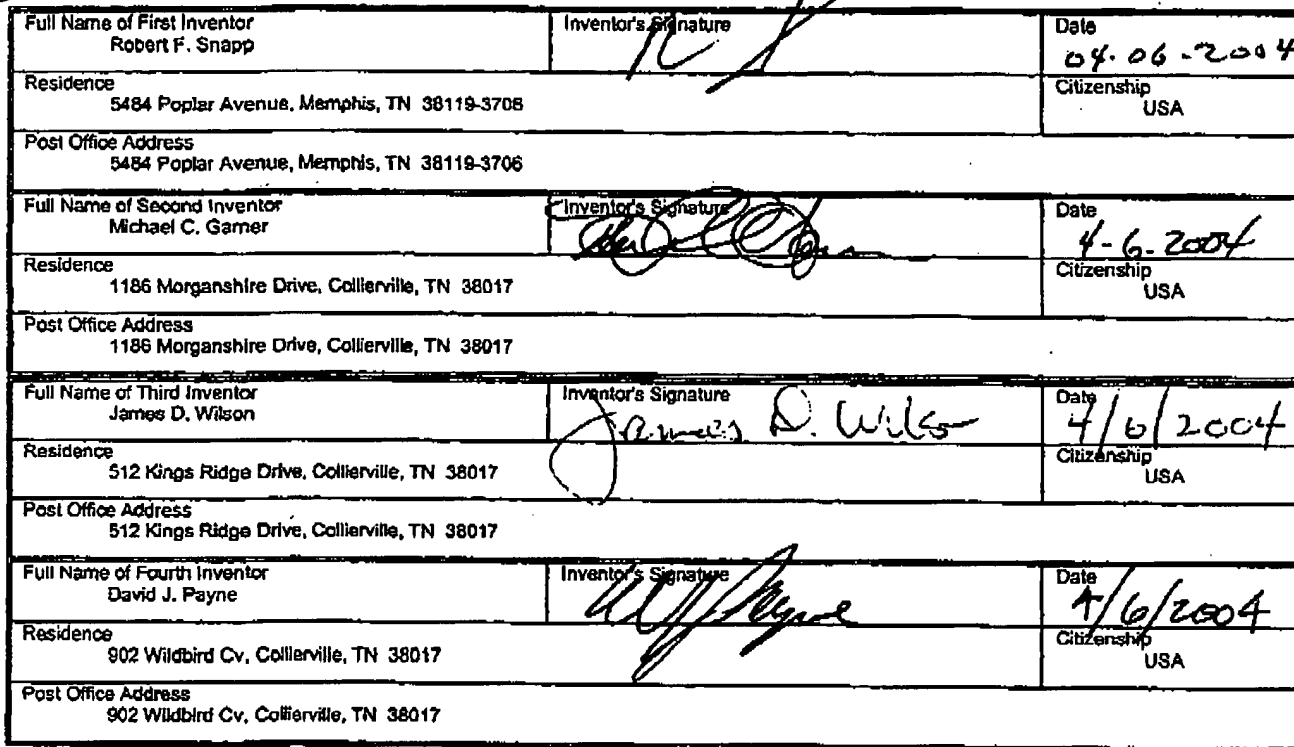 Full Name of First Inventor
Robert F. Snapp
Inventor's Signature
Date
04-06-2004
Residence
5484 Poplar Avenue, Memphis, TN 38119-3706
Citizenship
USA
Post Office Address
5484 Poplar Avenue, Memphis, TN 38119-3706
Full Name of Second Inventor
Michael C. Garner
Inventor's Signature
Date
4-6-2004
Residence
1186 Morganshire Drive, Collierville, TN 38017
Citizenship
USA
Post Office Address
1186 Morganshire Drive, Collierville, TN 38017
Full Name of Third Inventor
James D. Wilson
Inventor's Signature
James D. Wilson
Date
4/6/2004
Residence
512 Kings Ridge Drive, Collierville, TN 38017
Citizenship
USA
Post Office Address
512 Kings Ridge Drive, Collierville, TN 38017
Full Name of Fourth Inventor
David J. Payne
Inventor's Signature
Date
4/6/2004
Residence
902 Wildbird Cv, Collierville, TN 38017
Citizenship
USA
Post Office Address
902 Wildbird Cv, Collierville, TN 38017